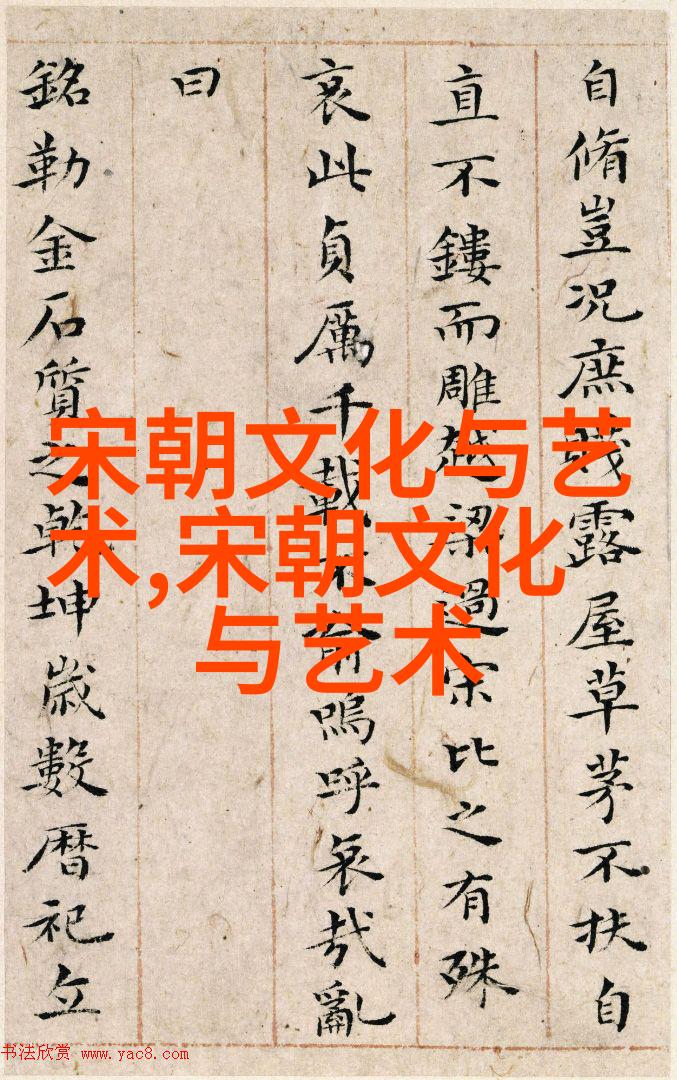 自脩豈況庶賤露屋草茅不扶自
直不鏤而雕越梁過宋比之有殊
哀此貞厲千載不渝嗚呼哀哉亂
曰
銘勒金石質之乾坤歲數暦祀立
宋朝文化与艺
术,宋朝文化
与艺术
书法欣赏 www.yac8.com